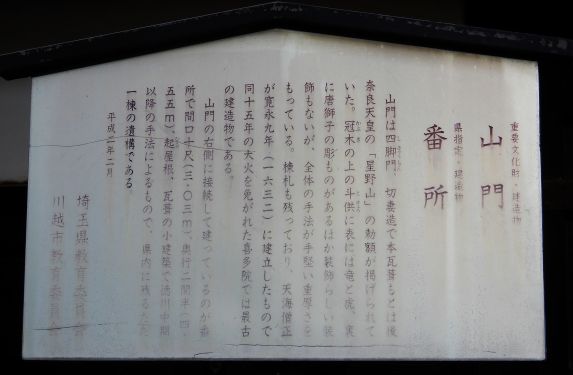 重要文化財・建造物
山門
県指定・建造物
番所
山門は四脚門、切妻造で本瓦葺もとは後
奈良天皇の「星野山」の勅額が掲げられて
いた。冠木の上の斗供に表には竜と虎、裏
に唐獅子の彫りものがあるほか装飾らしい装
飾もないが、全体の手法が手堅い重厚さを
もっている。棟札も残っており、天海僧正
が寛永九年（一六三二）に建立したもので
同十五年の大火を免がれた喜多院では最古
の建造物である。
山門の右側に接続して建っているのが番
所で間口十尺（三・〇三m）、奥行二間半（四・
五五m）、起屋根、瓦葺の小建築で徳川中期
以降の手法によるもので、県内に残るただ
一棟の遺構である
平成二年二月
埼玉県教育委員会
川越市教育委員会